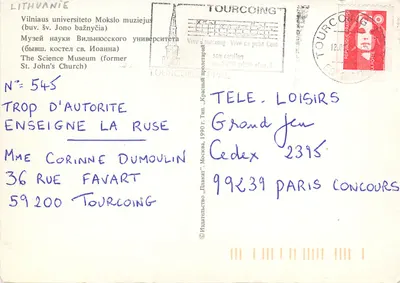 LITHUANIE
Vilniaus universiteto Mokslo muziejus
(buv. šv. Jono bažnyčia)
Музей науки Вильнюсского университета
(бывш. костел св. Иоанна)
The Science Museum (former
St. John's Church)
TOURCOING
TOURCOING
N°: 545
TROP D'AUTORITE
ENSEIGNE LA RUSE
MME CORINNE DUMOULIN
36 RUE FAVART
59200 TOURCOING
TELE-LOISIRS
Grand Jeu
Cedex 2395
99239 PARIS CONCOURS
© Издательство «Планета», Москва, 1990 г. Тип. «Красный пролетарий»